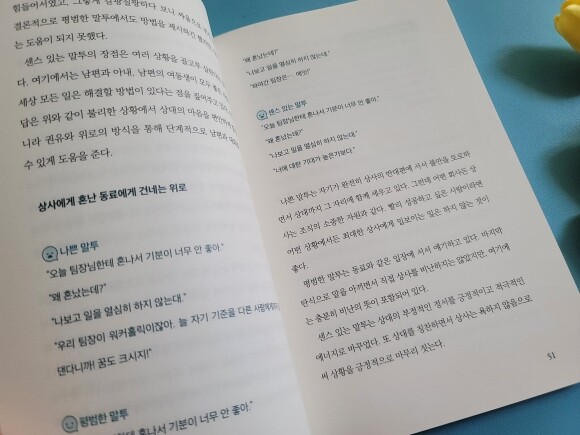 힘들어서였고, 그렇게 감정실랑하다 보니 싸움으로
결론적으로 평범한 말투에서도 방법을 제시하긴 했지
는 도움이 되지 못했다.
센스 있는 말투의 장점은 여러 상황을 골고루
다. 여기에서는 남편과 아내, 남편의 여동생이 모두
세상 모든 일은 해결할 방법이 있다는 점을 짚어주고
답은 위와 같이 불리한 상황에서 상대의 마음을 편안하게
니라 권유와 위로의 방식을 통해 단계적으로 남편과
수 있게 도움을 준다.
상사에게 혼난 동료에게 건네는 위로
나쁜 말투
"오늘 팀장님한테 혼나서 기분이 너무 안 좋아."
"왜 혼났는데?"
"나보고 일을 열심히 하지 않는대."
"우리 팀장이 워커홀릭이잖아. 늘 자기 기준을 다른 사람에게
댄다니까! 꿈도 크시지!"
평범한 말투
혼나서 기분이 너무 안 좋아."
"왜 혼났는데?"
"나보고 일을 열심히 하지 않는대."
"하여간 팀장은…. 에잇!"
센스 있는 말투
"오늘 팀장님한테 혼나서 기분이 너무 안 좋아."
"왜 혼났는데?"
"나보고 일을 열심히 하지 않는대."
"너에 대한 기대가 높은가보다."
나쁜 말투는 자기가 완전히 상사의 반대편에 서서 불만을 토로하
면서 상대까지 그 자리에 함께 세우고 있다. 그런데 어떤 회사든 상
사는 조직의 소중한 자원과 같다. 빨리 성공하고 싶은 사람이라면
어떤 상황에서든 최대한 상사에게 밉보이는 일은 하지 않는 것이
좋다.
평범한 말투는 동료와 같은 입장에 서서 얘기하고 있다. 마지막
탄식으로 말을 아끼면서 직접 상사를 비난하지는 않았지만, 여기에
는 충분히 비난의 뜻이 포함되어 있다.
센스 있는 말투는 상대의 부정적인 정서를 긍정적이고 적극적인
에너지로 바꾸었다. 또 상대를 칭찬하면서 상사는 욕하지 않음으로
써 상황을 긍정적으로 마무리 짓는다.
51